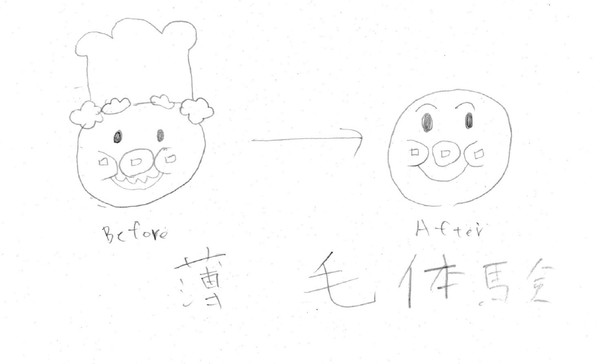 Before
After
薄毛体験